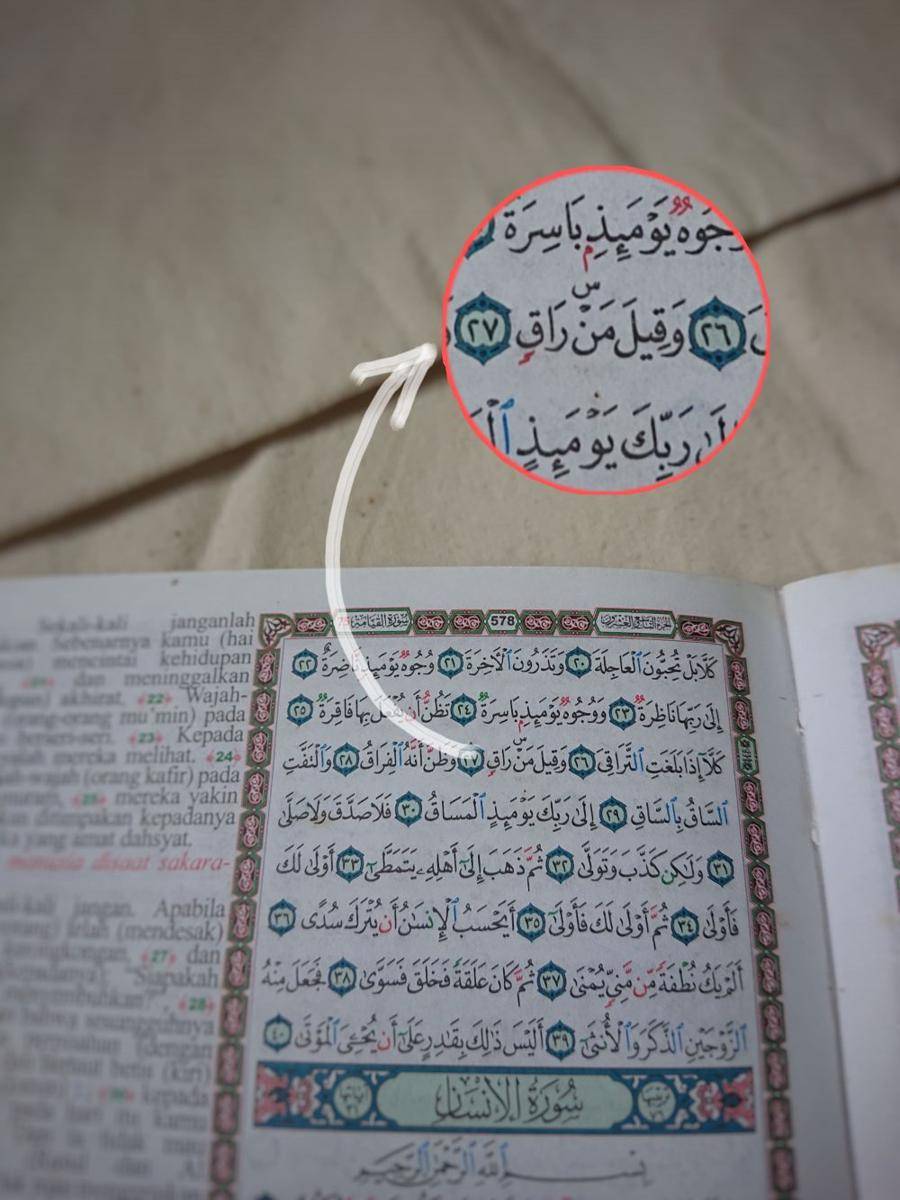 يَوْمَئِذٍۭ بَاسِرَةٌ
٢٦ وَقِيلَ مَنْۜ رَاقٍ ٢٧
رَبِّكَ يَوْمَئِذٍ
سورة القيامة 75 578
كَلَّا بَلْ تُحِبُّونَ ٱلْعَاجِلَةَ ٢٠ وَتَذَرُونَ ٱلْآخِرَةَ ٢١ وُجُوهٌ يَوْمَئِذٍ نَّاضِرَةٌ ٢٢
إِلَىٰ رَبِّهَا نَاظِرَةٌ ٢٣ وَوُجُوهٌ يَوْمَئِذٍۭ بَاسِرَةٌ ٢٤ تَظُنُّ أَن يُفْعَلَ بِهَا فَاقِرَةٌ ٢٥
كَلَّآ إِذَا بَلَغَتِ ٱلتَّرَاقِىَ ٢٦ وَقِيلَ مَنْۜ رَاقٍ ٢٧ وَظَنَّ أَنَّهُ ٱلْفِرَاقُ ٢٨ وَٱلْتَفَّتِ
ٱلسَّاقُ بِٱلسَّاقِ ٢٩ إِلَىٰ رَبِّكَ يَوْمَئِذٍ ٱلْمَسَاقُ ٣٠ فَلَا صَدَّقَ وَلَا صَلَّىٰ
٣١ وَلَٰكِن كَذَّبَ وَتَوَلَّىٰ ٣٢ ثُمَّ ذَهَبَ إِلَىٰٓ أَهْلِهِۦ يَتَمَطَّىٰٓ ٣٣ أَوْلَىٰ لَكَ
فَأَوْلَىٰ ٣٤ ثُمَّ أَوْلَىٰ لَكَ فَأَوْلَىٰٓ ٣٥ أَيَحْسَبُ ٱلْإِنسَٰنُ أَن يُتْرَكَ سُدًى ٣٦
أَلَمْ يَكُ نُطْفَةً مِّن مَّنِىٍّ يُمْنَىٰ ٣٧ ثُمَّ كَانَ عَلَقَةً فَخَلَقَ فَسَوَّىٰ ٣٨ فَجَعَلَ مِنْهُ
ٱلزَّوْجَيْنِ ٱلذَّكَرَ وَٱلْأُنثَىٰٓ ٣٩ أَلَيْسَ ذَٰلِكَ بِقَٰدِرٍ عَلَىٰٓ أَن يُحْـِۧىَ ٱلْمَوْتَىٰ ٤٠
سُورَةُ الإِنسَانِ
بِسْمِ ٱللَّهِ ٱلرَّحْمَٰنِ ٱلرَّحِيمِ
Sekali-kali janganlah
Sebenarnya kamu (hai
mencintai kehidupan
dan meninggalkan
akhirat. «22» Wajah-
orang mu'min) pada
«23» Kepada
mereka melihat. «24»
(orang kafir) pada
mereka yakin
ditimpakan kepadanya
yang amat dahsyat.
manusia disaat sakara-
jangan. Apabila
telah (mendesak)
«27» dan
"Siapakah
«28»
sesungguhnya